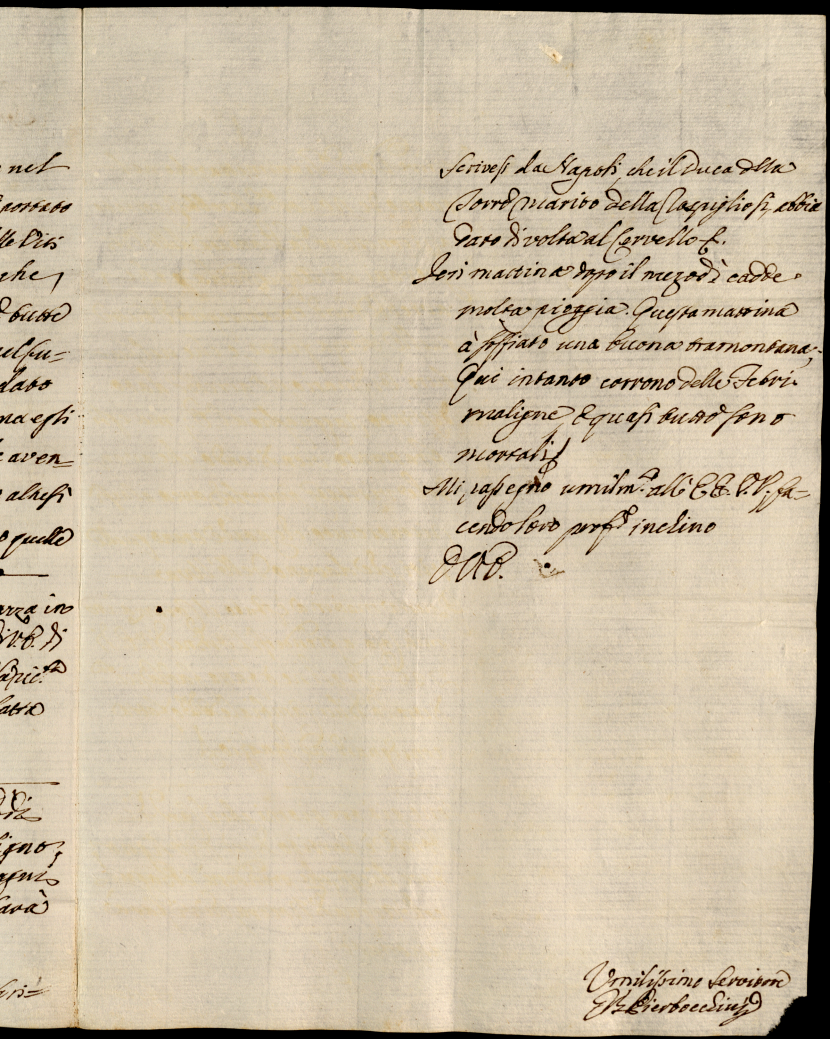 nel
portato
lle Viti
ghe,
è tutto
nel fu-
dato
ma egli
e aven-
altresì
o quelle
arza in
di V.E. di
latra
igno;
sarà
Scrivesi da Napoli, che il Duca della
Torre marito della Rospigliosi, abbia
dato di volta al Cervello &.
Jeri mattina dopo il mezodì cadde
molta pioggia. Questa mattina
à soffiato una buona tramontana;
Qui intanto corrono delle Febri
maligne, e quasi tutte sono
mortali.
Mi rassegno umilm.te all'E.E. V.V. fa-
cendo loro prof.o inclino
Umilissimo Servitore